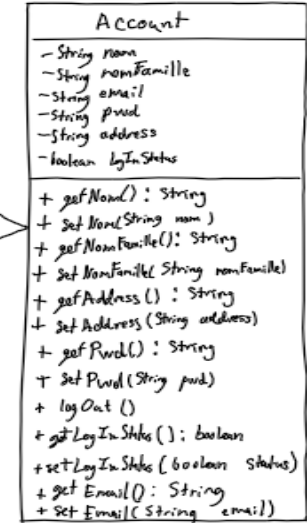 Account
- String nom
- String nomFamille
- String email
- String pwd
- String address
- boolean logInStatus
+ getNom() : String
+ setNom(String nom)
+ getNomFamille(): String
+ setNomFamille(String nomFamille)
+ getAddress() : String
+ setAddress(String address)
+ getPwd() : String
+ setPwd(String pwd)
+ logOut ()
+ getLogInStatus() : boolean
+ setLogInStatus (boolean status)
+ getEmail() : String
+ setEmail(String email)